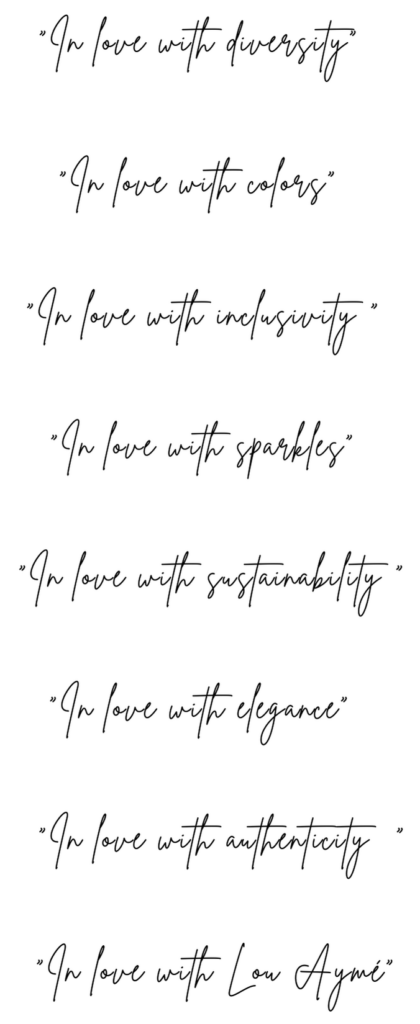 "In love with diversity"
"In love with colors"
"In love with inclusivity "
"In love with sparkles"
"In love with sustainability "
"In love with elegance"
"In love with authenticity "
"In love with Lou Aymé"